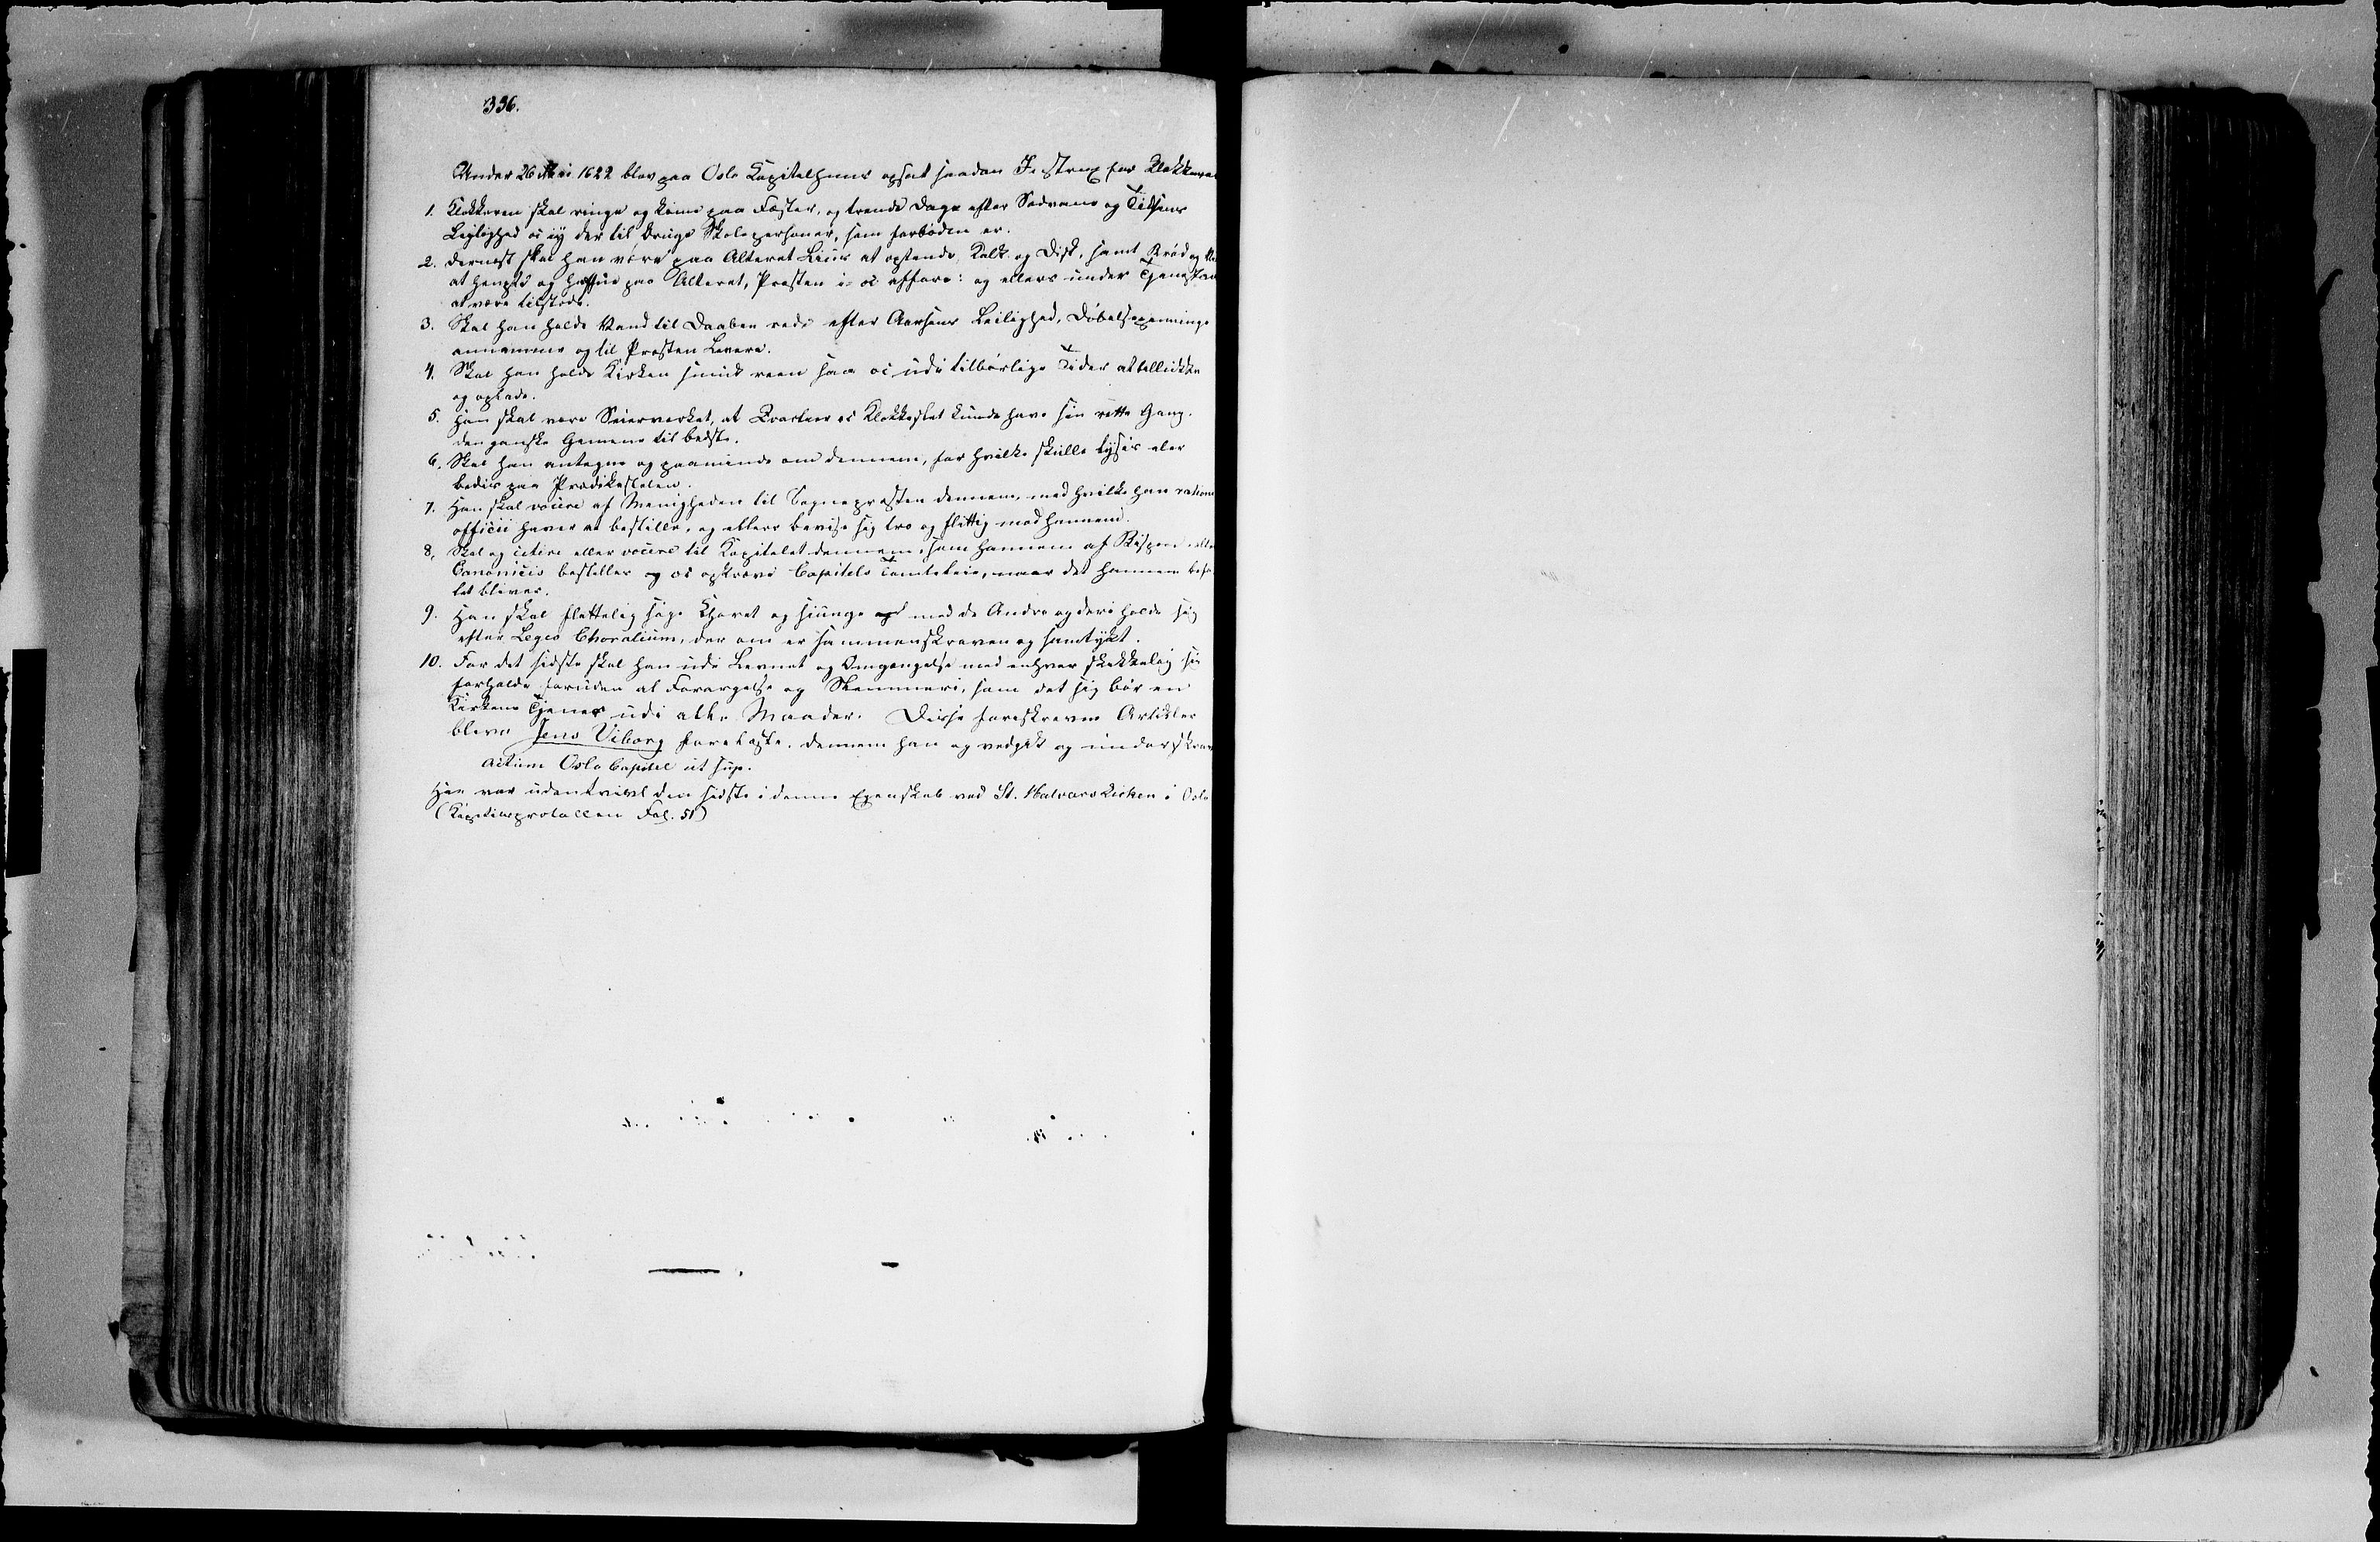 336.
Under 26 Mai 1622 blev paa Oslo Kapitelhuus opsat saadan Instrux for Klokkeren
1. Klokkeren skal ringe og kime paa Fæster, og trende Dage efter Sedvane og Tidsens
Leylighed oc ey der til bruge Skolepersoner, som forboden er.
2. Dernest skal han være paa Alteret Liuus at optende, Kalk og Disk, samt Brød og
at hente og haffue paa Alteret, Presten i oc affføre: og ellers under Tjenesten
at være tilstede.
3. Skal han holde Vand til Daaben rede efter Aarsens Leilighed, Døbelsepenninge
annamme og til Presten levere.
4. Skal han holde Kirken smuck reen saa oc udi tilbørlige Tider at tillukke
og oplade.
5. Han skal vare Seierverket, at Qvarteer oc Klokkeslet kunde have sin rette Gang.
den ganske Gemene til bedste.
6. Skal han antegne og paaminde om dennem, for hvilke skulle lyses eler
bedes paa Prædikestolen.
7. Han skal vocere af Menigheden til Sognepresten dennem, med hvilke han ratione
officii haver at bestille, og ellers bevise sig tro og flittig mod hannem.
8. Skal og citere eller vocere til Kapitelet dennem, som hannem af Bispen eller
Canonicis befalles og oc opkræve Capitels Tomteleie, naar det hannem befa-
let bliver.
9. Han skal flittelig søge Choret og siunge med de Andre og deri holde sig
efter Leges Choralium, der om er sammenskreven og samtykt.
10. For det sidste skal han udi Levnet og Omgængelse med enhver skikkelig sig
forholde foruden al Forargelse og Slemmeri, som det sig bør en
Kirkens Tjener udi alle Maader. Disse foreskrevne Artikler
bleve Jens Viborg forelagte, dennem han og vedgik og underskrev
actum Oslo Capitel ut sup.
Han var udentvivl den sidste i denne Egenskab ved St. Halvards Kirken i Oslo
(Kapitelsprotocollen Fol. 51)